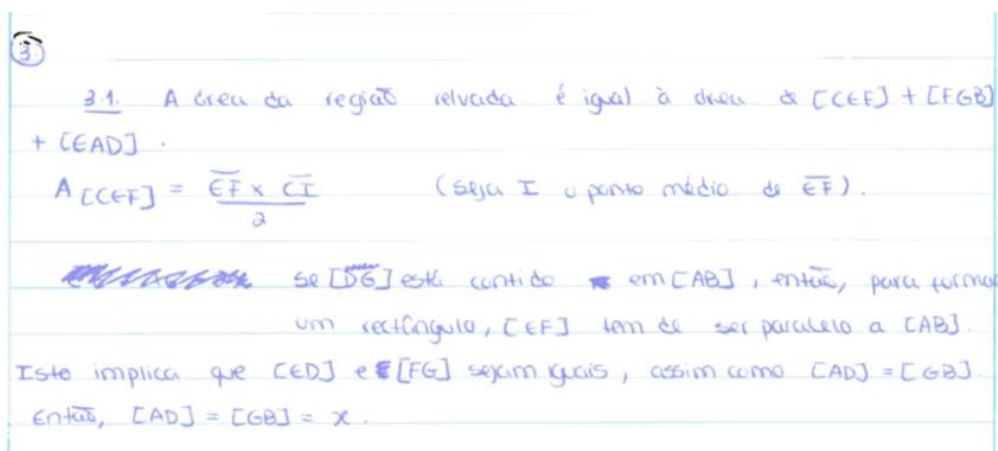 3.
3.1. A área da região relvada é igual à área de [CEF] + [FGB]
+ [EAD].
A [CEF] = EF × CI / 2 (seja I o ponto médio de EF).
se [DG] está contido em [AB], então, para formar
um rectângulo, [EF] tem de ser paralelo a [AB].
Isto implica que [ED] e [FG] sejam iguais, assim como [AD] = [GB].
Então, [AD] = [GB] = x.